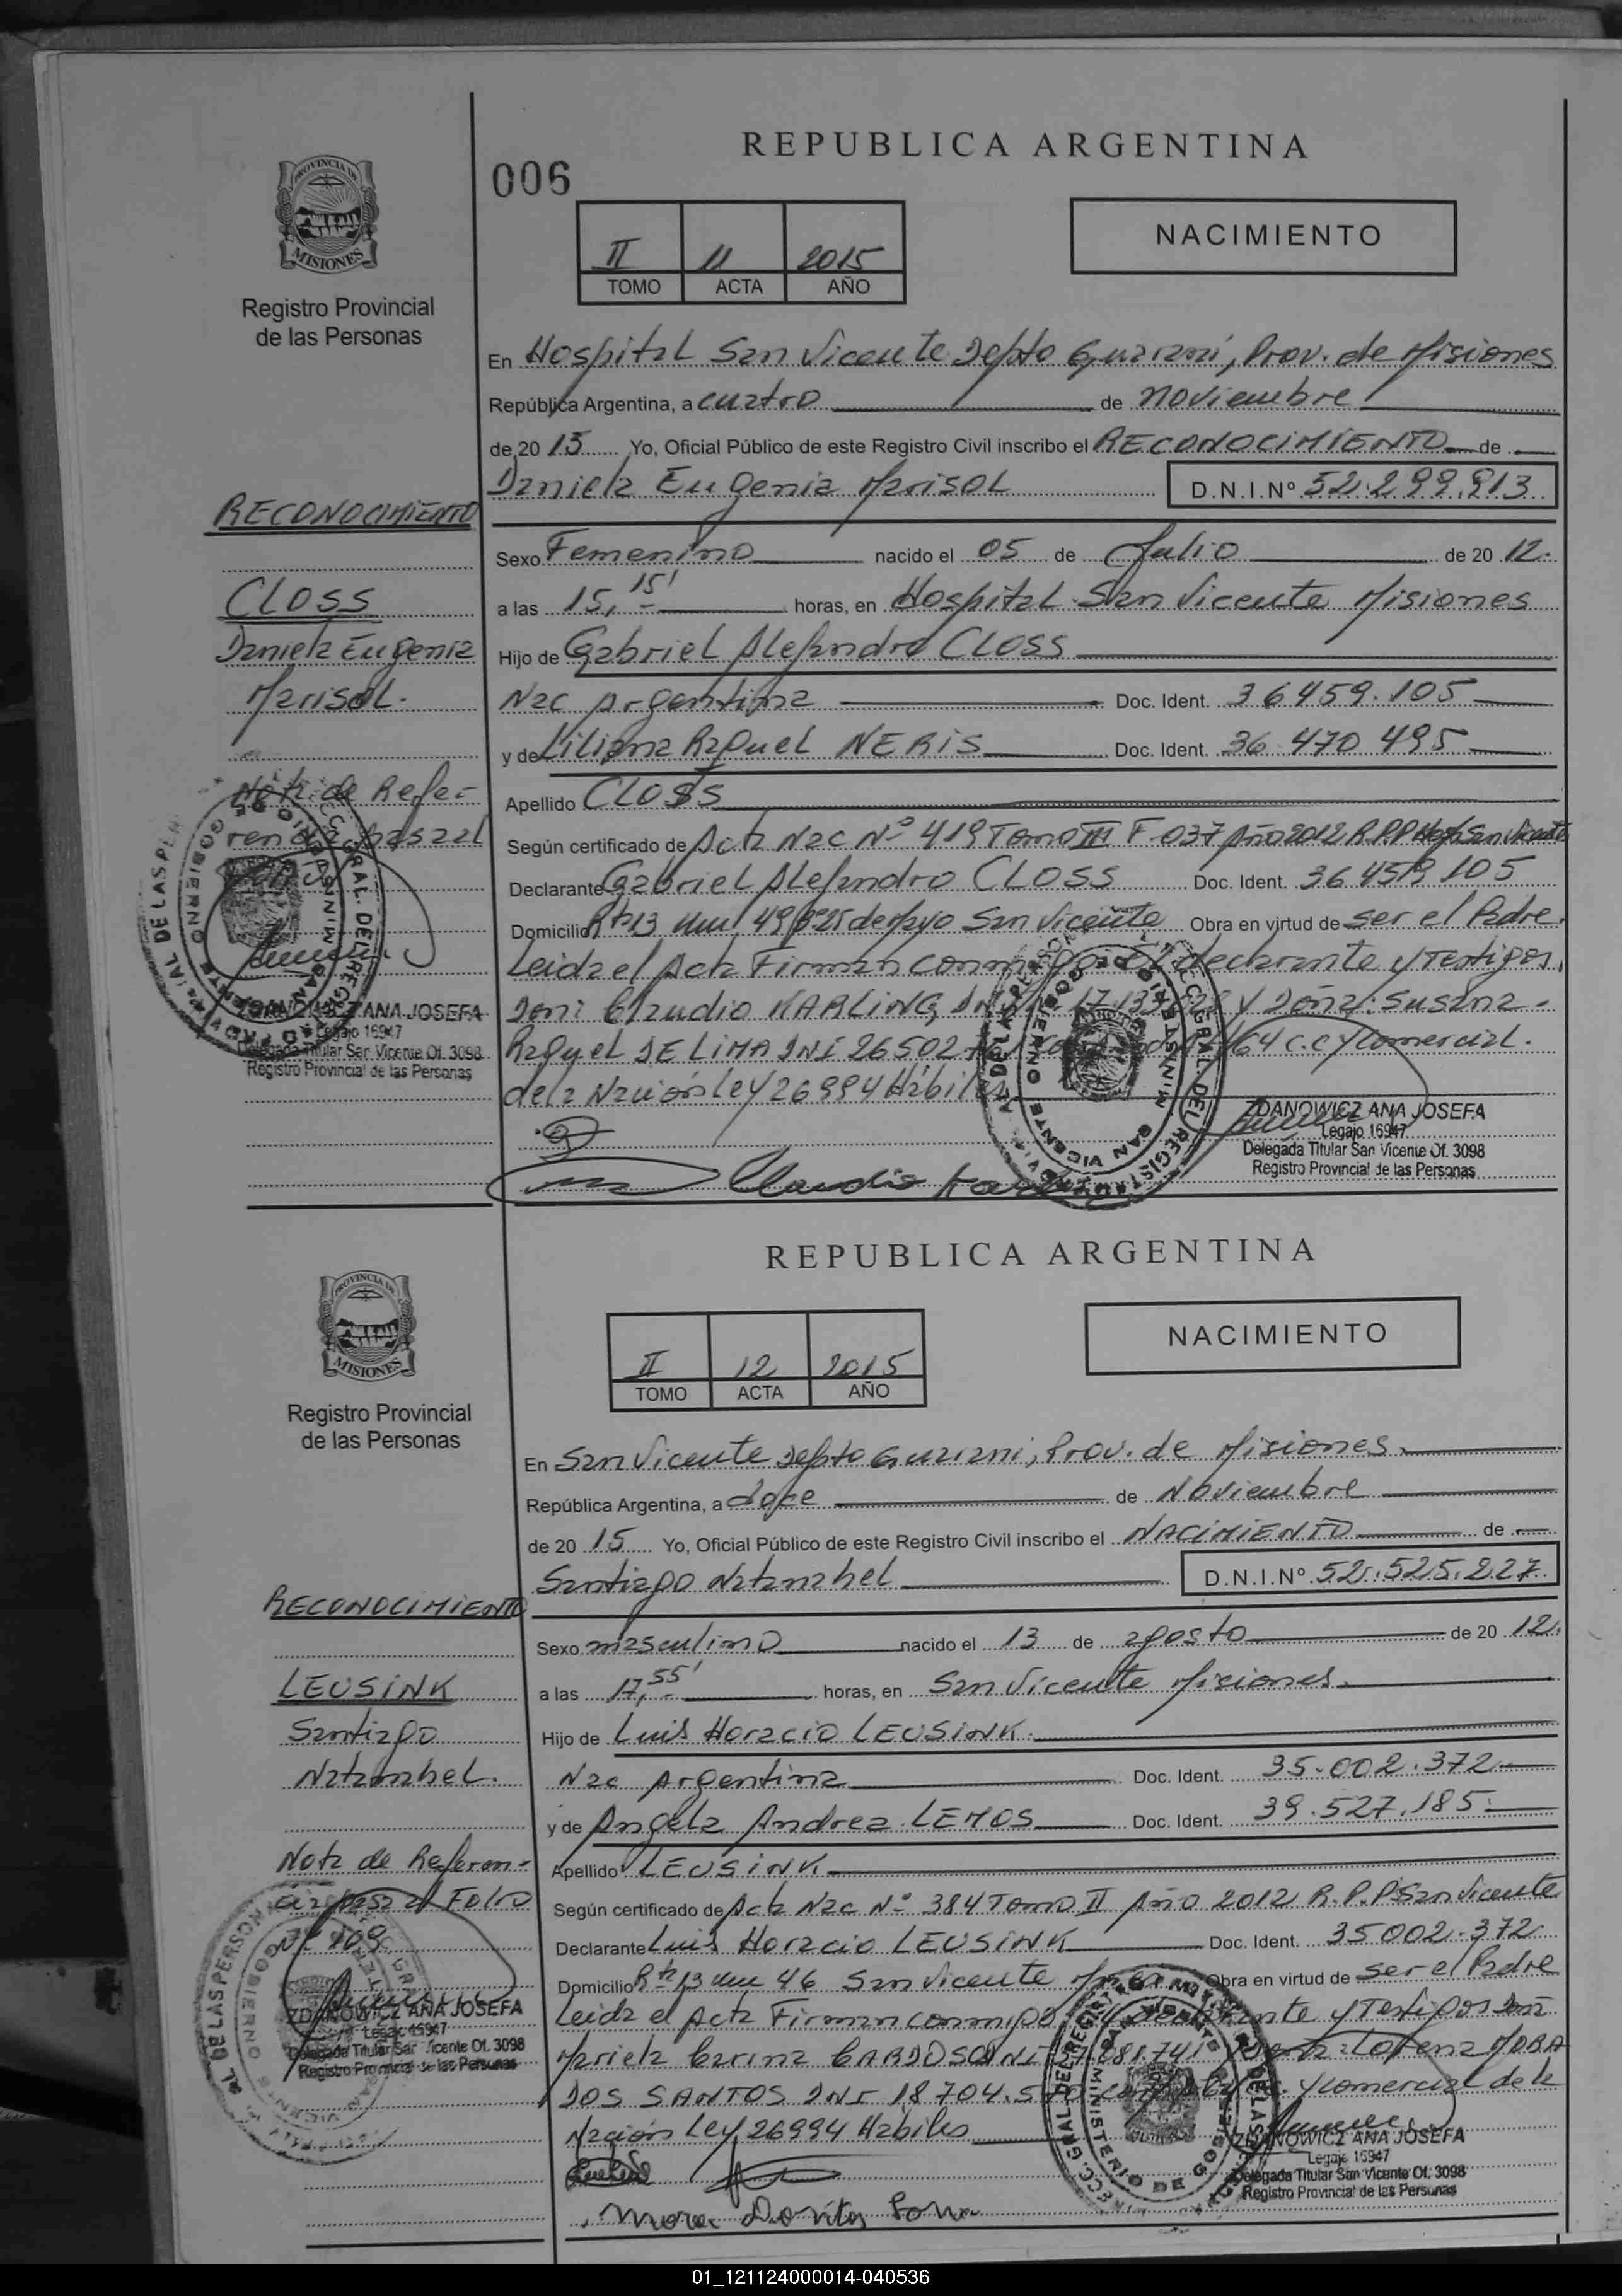 REPUBLICA ARGENTINA
006
PROVINCIA DE
MISIONES
Registro Provincial
de las Personas
II 11 2015
TOMO ACTA AÑO
NACIMIENTO
En Hospital San Vicente Depto Guarani, Prov. de Misiones
República Argentina, a cuatro de noviembre
de 20 15 Yo, Oficial Público de este Registro Civil inscribo el RECONOCIMIENTO de
Daniela Eugenia Marisol D.N.I.Nº 52.299.913
RECONOCIMIENTO
Sexo Femenino nacido el 05 de Julio de 20 12.
CLOSS
a las 15,15' horas, en Hospital San Vicente Misiones
Daniela Eugenia
Hijo de Gabriel Alejandro CLOSS
Marisol.
Nac Argentina Doc. Ident. 36459.105
y de Liliana Raquel NERIS Doc. Ident. 36 470 495
Nota de Refe-
Apellido CLOSS
Según certificado de Acta Nac Nº 419 Tomo III F-037 Año 2012 R.P.P Hosp San Vicente
Declarante Gabriel Alejandro CLOSS Doc. Ident. 36 459 105
Domicilio Rta 13 San Vicente Obra en virtud de ser el Padre.
Leida el Acta Firman conmigo El declarante y Testigos,
Don: Claudio KARLING, y Doña: Susana
Raquel DE LIMA DNI 26502 64 C.C y Comercial.
de la Nación Ley 26994 Hábiles
ZDANOWICZ ANA JOSEFA
Legajo 16947
Delegada Titular San Vicente Of. 3098
Registro Provincial de las Personas
ZDANOWICZ ANA JOSEFA
Legajo 16947
Delegada Titular San Vicente Of. 3098
Registro Provincial de las Personas
Claudio
REPUBLICA ARGENTINA
PROVINCIA DE
MISIONES
Registro Provincial
de las Personas
II 12 2015
TOMO ACTA AÑO
NACIMIENTO
En San Vicente Depto Guarani, Prov. de Misiones
República Argentina, a doce de Noviembre
de 20 15 Yo, Oficial Público de este Registro Civil inscribo el NACIMIENTO de
Santiago Natanahel D.N.I.Nº 52.525.227
RECONOCIMIENTO
Sexo masculino nacido el 13 de agosto de 20 12.
LEUSINK
a las 17,55' horas, en San Vicente Misiones
Santiago
Hijo de Luis Horacio LEUSINK
Natanahel.
Nac Argentina Doc. Ident. 35.002.372
y de Angela Andrea LEMOS Doc. Ident. 39.527.185
Nota de Referen-
Apellido LEUSINK
cia pasa al Folio
Según certificado de Acta Nac Nº 384 Tomo II Año 2012 R.P.P San Vicente
Nº 109
Declarante Luis Horacio LEUSINK Doc. Ident. 35 002.372
Domicilio Rta 13 km 46 San Vicente Obra en virtud de ser el Padre
Leida el Acta Firman conmigo El declarante y Testigos Doña
Mariela Carina CARDOSO DNI Lorena MORA
DOS SANTOS DNI 18 704. y Comercial de la
Nación Ley 26994 Hábiles
ZDANOWICZ ANA JOSEFA
Legajo 16947
Delegada Titular San Vicente Of. 3098
Registro Provincial de las Personas
ZDANOWICZ ANA JOSEFA
Legajo 16947
Delegada Titular San Vicente Of. 3098
Registro Provincial de las Personas
01_121124000014-040536